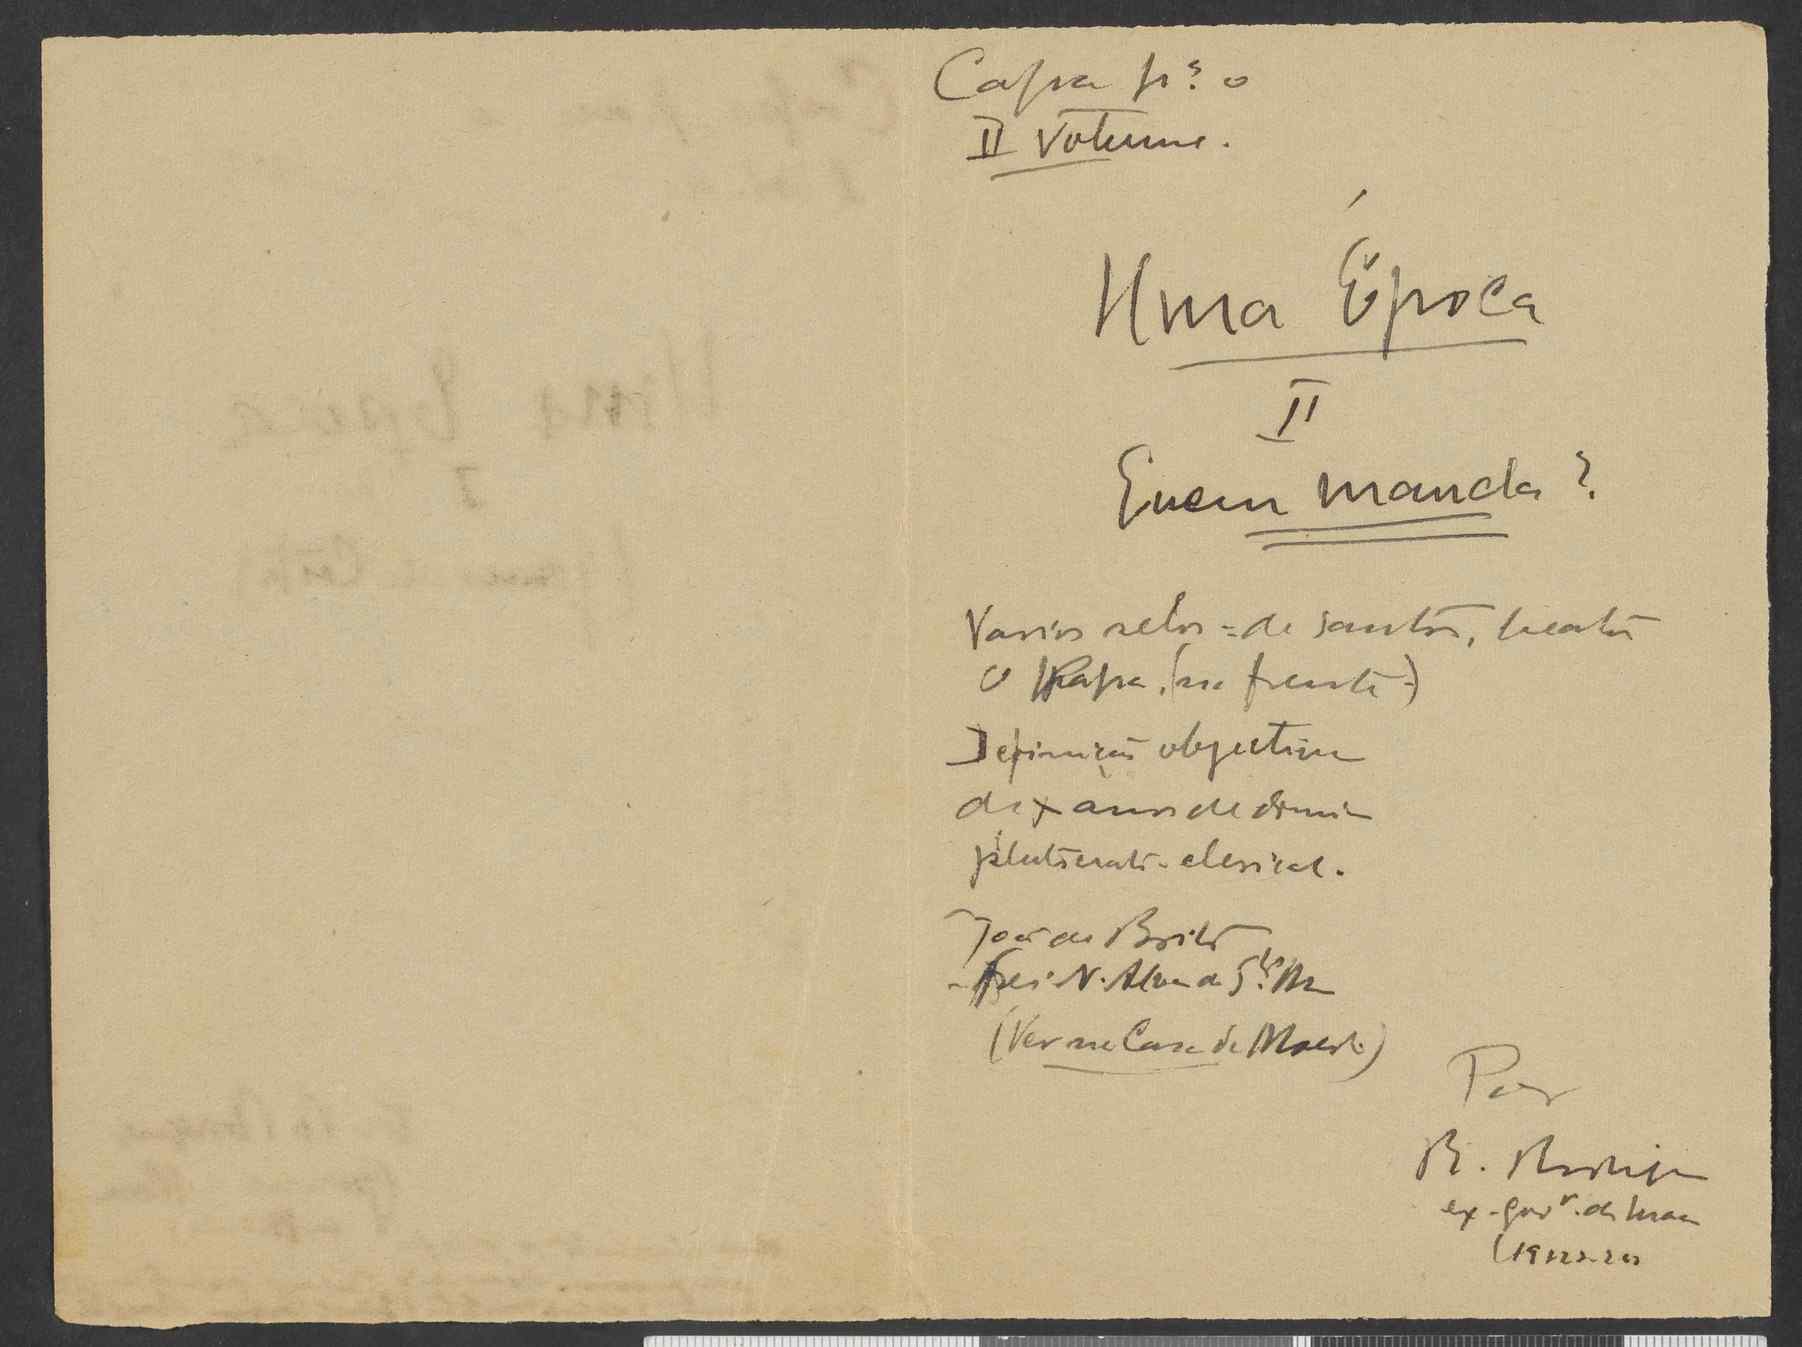 Capa pª o
II Volume.
Uma Época
II
Quem manda?
Varios selos = de santos, beatos
o Papa. (na frente)
Definição objectiva
de x anos de domin
plutocrato-clerical.
João de Brito
Frei N. Alvares de Stª Mª
(Ver na Casa da Moeda)
Por
R. Rodrigues
ex-govr. de Macau